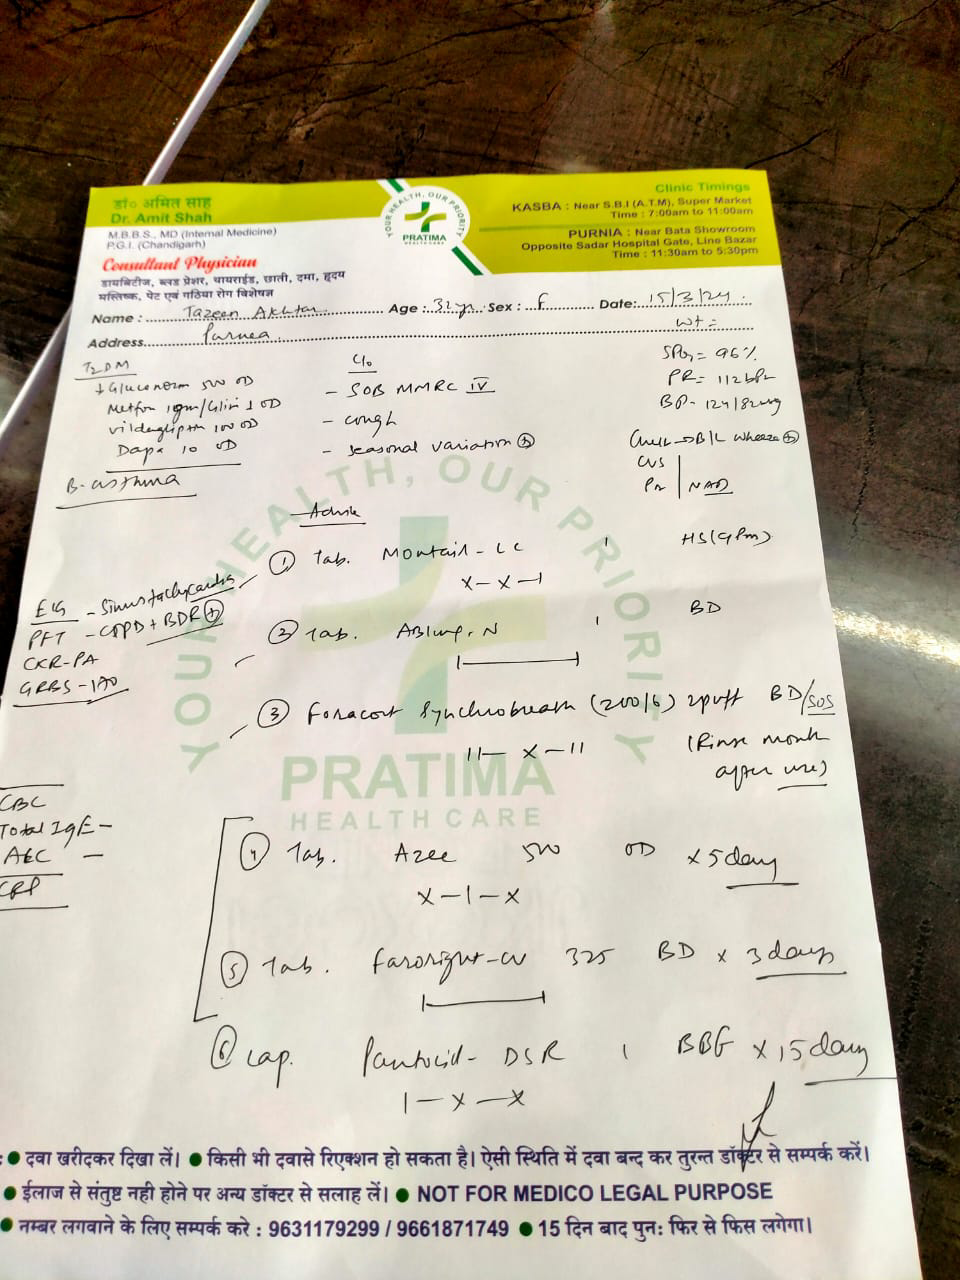 डा० अमित साह
Dr. Amit Shah
M.B.B.S., MD (Internal Medicine)
P.G.I. (Chandigarh)
Consultant Physician
डायबिटीज, ब्लड प्रेशर, थायराईड, छाती, दमा, हृदय
मस्तिष्क, पेट एवं गठिया रोग विशेषज्ञ
YOUR HEALTH, OUR PRIORITY
PRATIMA
HEALTH CARE
Clinic Timings
KASBA : Near S.B.I (A.T.M), Super Market
Time : 7:00am to 11:00am
PURNIA : Near Bata Showroom
Opposite Sadar Hospital Gate, Line Bazar
Time : 11:30am to 5:30pm
Name : Tazeen Akhtar Age : 32yr Sex : F Date: 15/3/24
Address Purnea
Wt =
T2DM
Gluconorm 500 OD
1gm/ 1 OD
vildagliptin 100 OD
Dapa 10 OD
B. asthma
C/o
- SOB MMRC IV
- cough
- seasonal variation ⊕
SPO2 = 96%
PR = 112 bpm
BP - 124/82
Chest → B/L wheeze ⊕
CVS
PA NAD
Advice
ECG - Sinus tachycardia
PFT - COPD + BDR ⊕
CXR-PA
GRBS - 170
CBC
Total IgE -
AEC -
CRP
① Tab. Montair - LC 1 HS (9pm)
x - x - 1
② Tab. AB N 1 BD
③ Foracort Synchrobreath (200/6) 2puff BD/SOS
11 - x - 11 (Rinse mouth
after use)
④ Tab. Azee 500 OD x 5 days
x - 1 - x
⑤ Tab. -CV 325 BD x 3 days
⑥ Cap. Pantocid - DSR 1 BBF x 15 days
1 - x - x
YOUR HEALTH, OUR PRIORITY
PRATIMA
HEALTH CARE
● दवा खरीदकर दिखा लें। ● किसी भी दवासे रिएक्शन हो सकता है। ऐसी स्थिति में दवा बन्द कर तुरन्त डॉक्टर से सम्पर्क करें।
● ईलाज से संतुष्ट नही होने पर अन्य डॉक्टर से सलाह लें। ● NOT FOR MEDICO LEGAL PURPOSE
● नम्बर लगवाने के लिए सम्पर्क करे : 9631179299 / 9661871749 ● 15 दिन बाद पुन: फिर से फिस लगेगा।